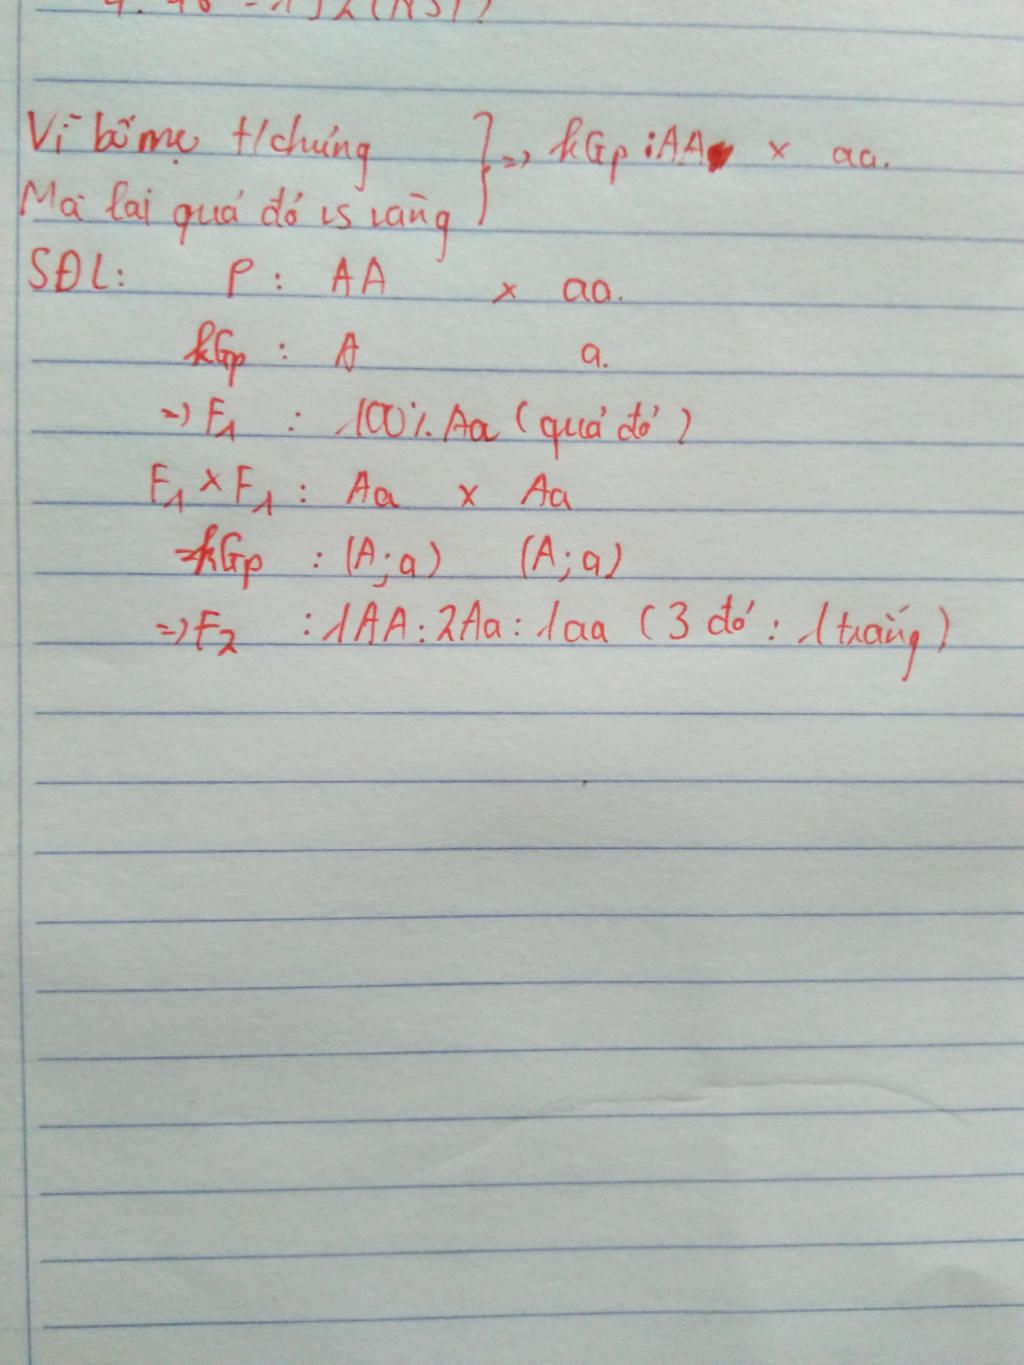 Vì bố mẹ t/chủng } => kGp : AA x aa.
Mà lai quả đỏ vs vàng
SĐL: P : AA x aa.
kGp : A a.
=> F1 : 100% Aa (quả đỏ)
F1 x F1 : Aa x Aa
=> kGp : (A; a) (A; a)
=> F2 : 1AA : 2Aa : 1aa (3 đỏ : 1 trắng)